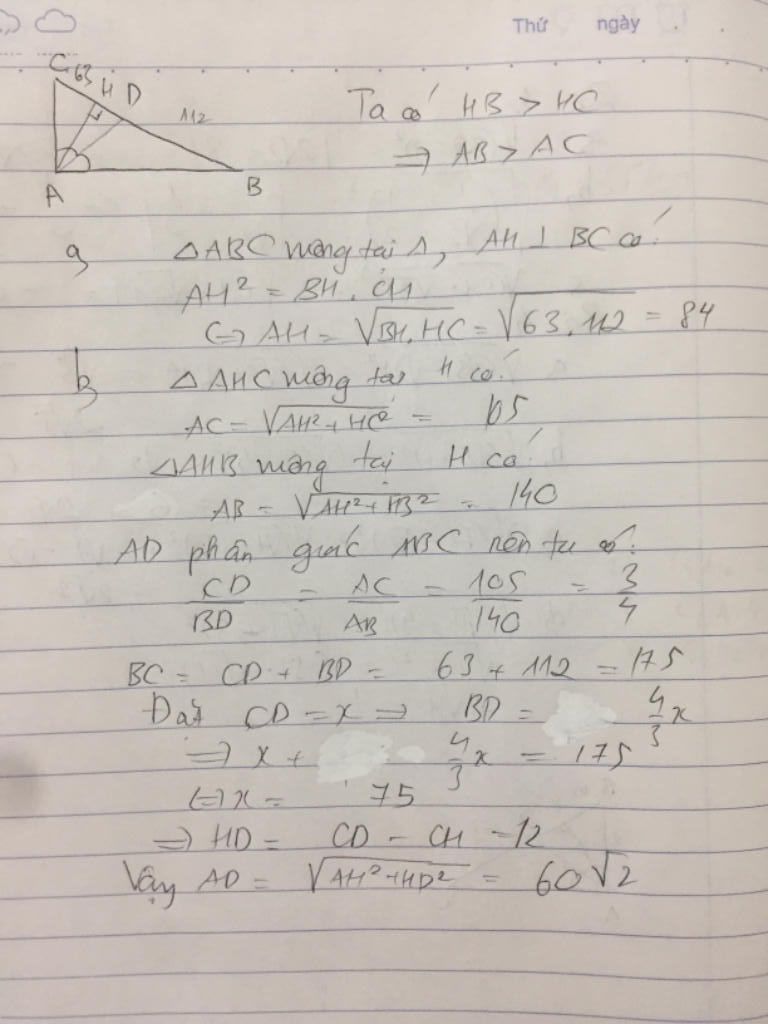 Thứ ngày
C 63 H D 112 A B
Ta có HB > HC
=> AB > AC
a, △ABC vuông tại A, AH ⊥ BC có:
AH² = BH . CH
<=> AH = √(BH.HC) = √(63.112) = 84
b, △AHC vuông tại H có:
AC = √(AH²+HC²) = 105
△AHB vuông tại H có:
AB = √(AH²+HB²) = 140
AD phân giác ABC nên ta có:
CD/BD = AC/AB = 105/140 = 3/4
BC = CD + BD = 63 + 112 = 175
Đặt CD = x => BD = 4/3 x
=> x + 4/3 x = 175
<=> x = 75
=> HD = CD - CH = 12
Vậy AD = √(AH²+HD²) = 60√2